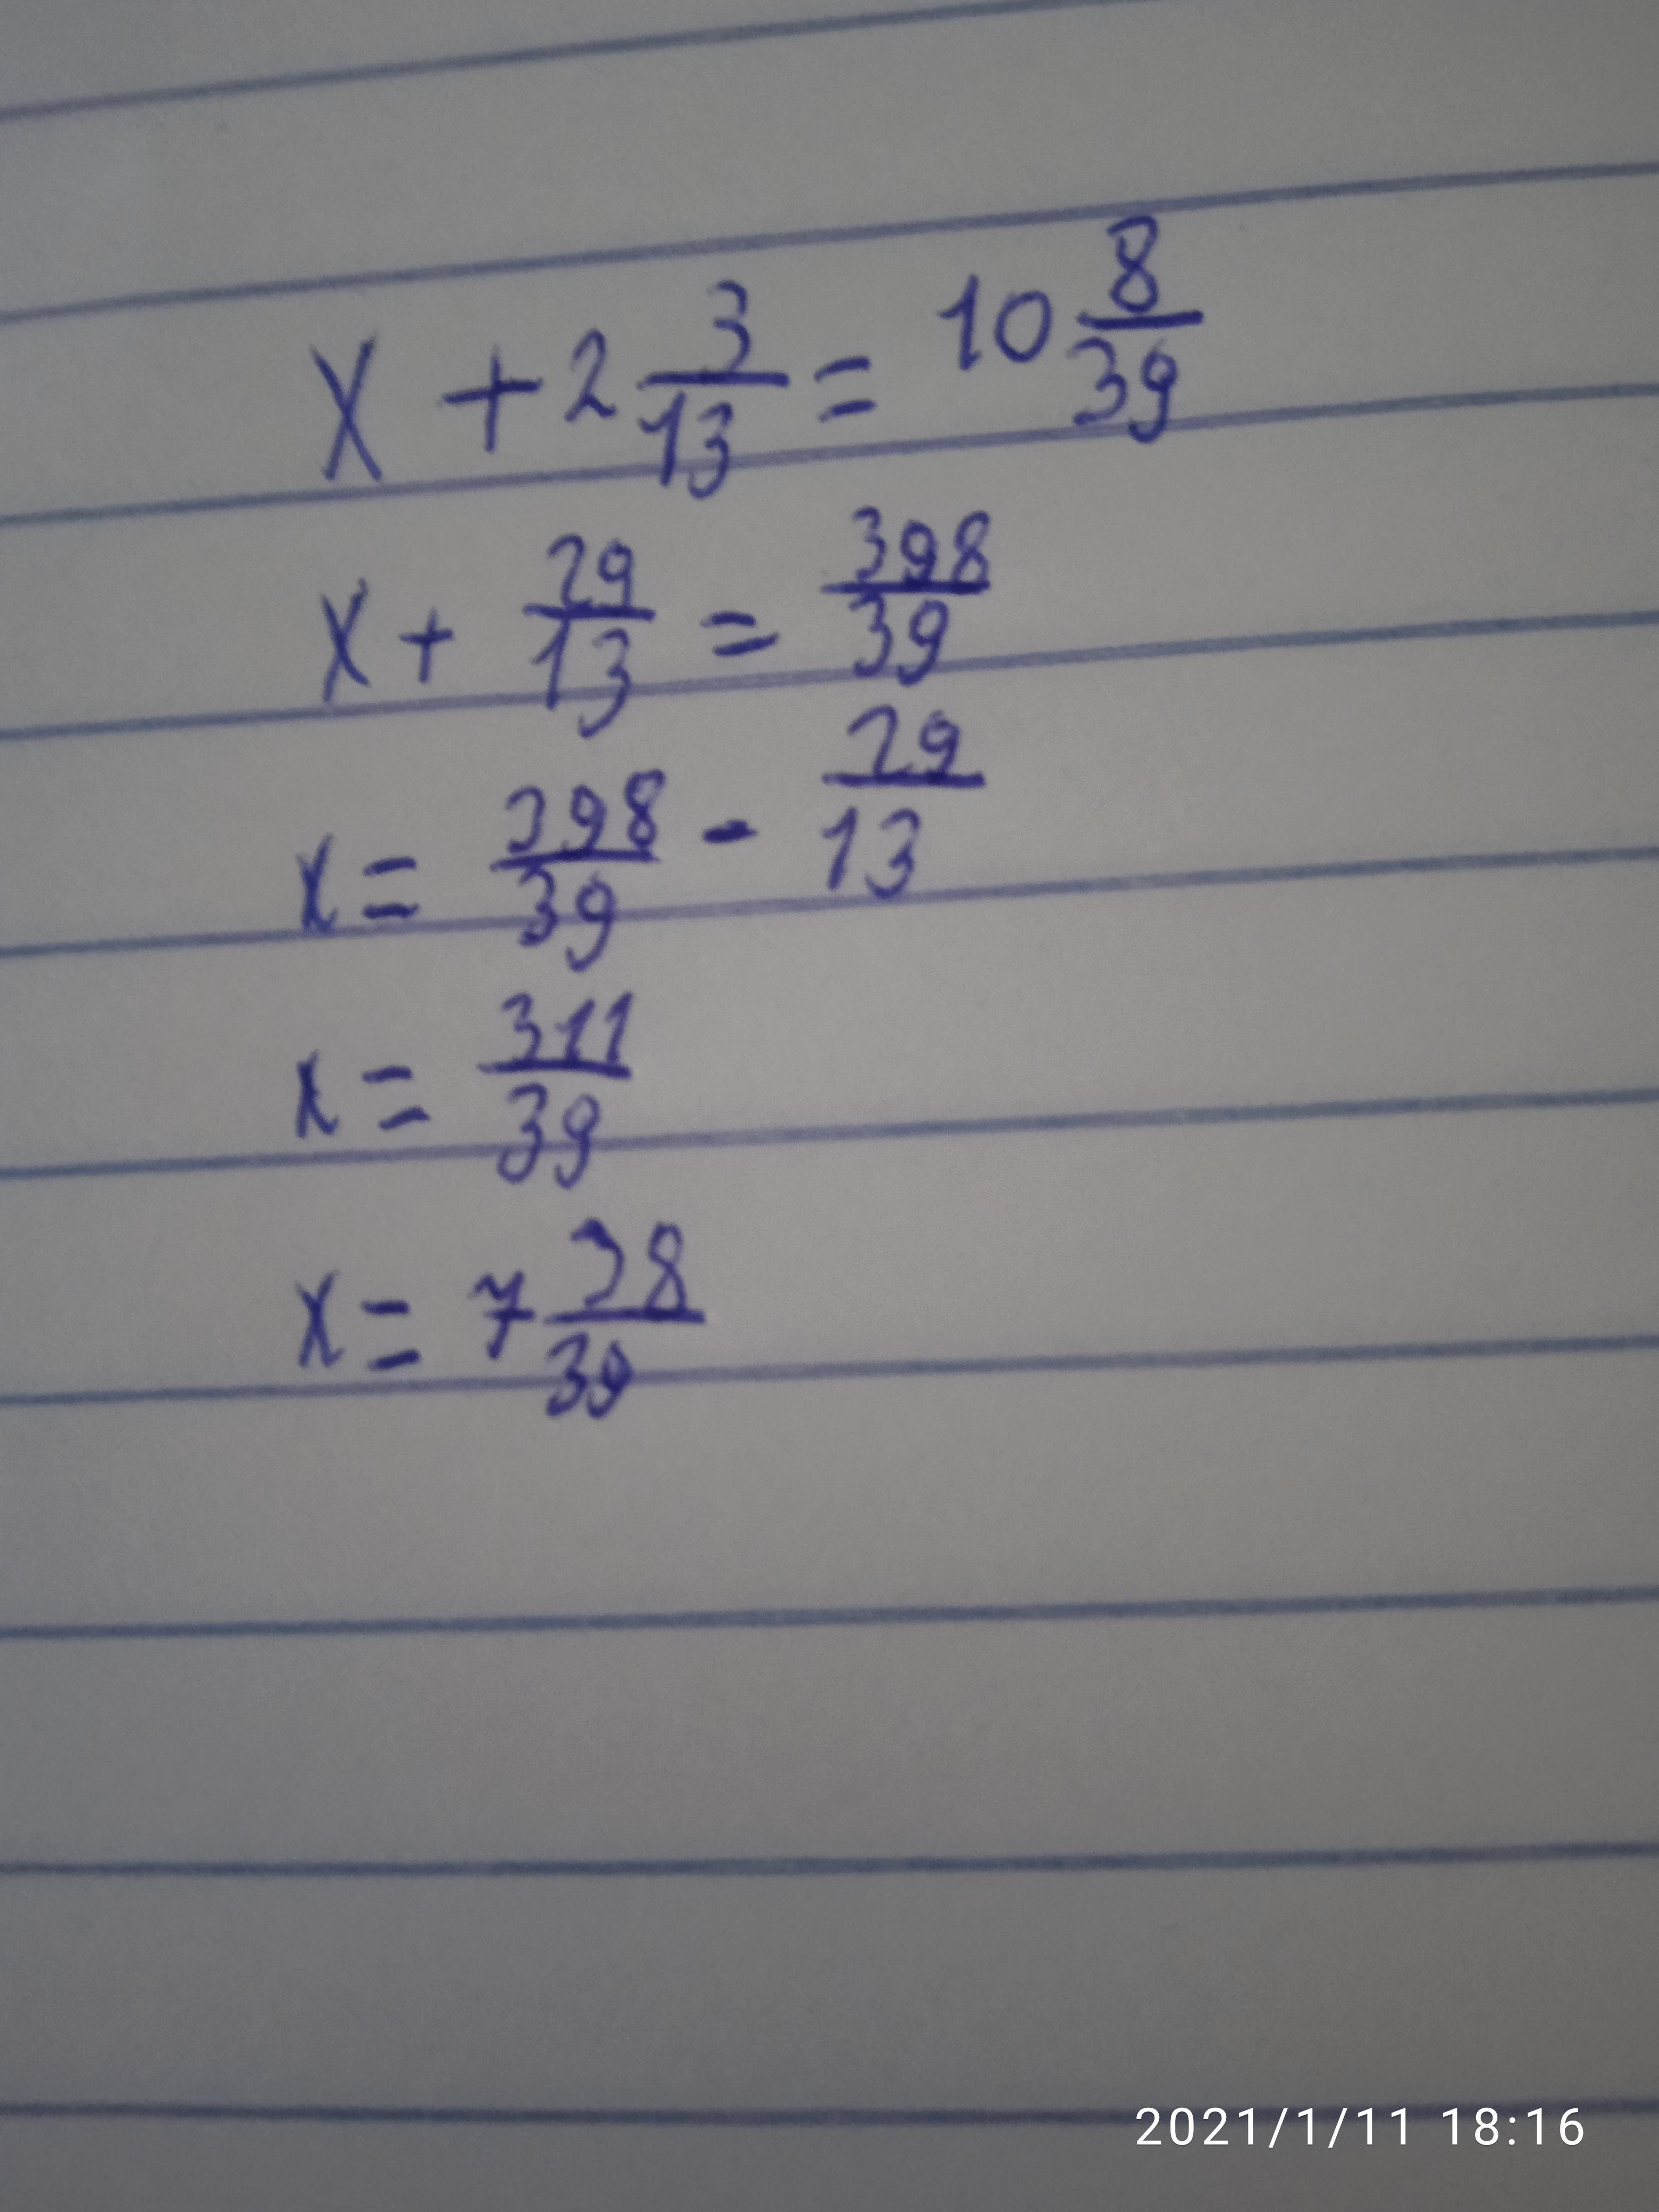 x + 2 3/13 = 10 8/39
x + 29/13 = 398/39
x = 398/39 - 29/13
x = 311/39
x = 7 38/39
2021/1/11 18:16